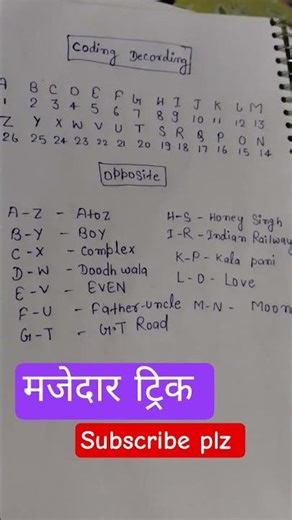 Coding Decording
A B C D E F G H I J K L M
1 2 3 4 5 6 7 8 9 10 11 12 13
Z Y X W V U T S R Q P O N
26 25 24 23 22 21 20 19 18 17 16 15 14
Opposite
A-Z - AtoZ
B-Y - BOY
C-X - Complex
D-W - Doodh wala
E-V - EVEN
F-U - Father-Uncle
G-T - G.T Road
H-S - Honey Singh
I-R - Indian Railway
K-P - Kala pani
L-O - Love
M-N - Moon
मजेदार ट्रिक
Subscribe plz